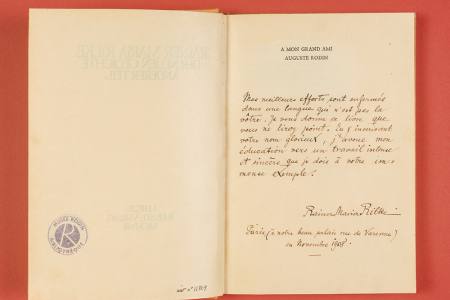 A MON GRAND AMI
AUGUSTE RODIN
Mes meilleurs efforts sont enfermés
dans une langue qui n'est pas la
vôtre. Je vous donne ce livre que
vous ne lirez point. En y inscrivant
votre nom glorieux, j'avoue mon
éducation vers un travail intense
et sincère que je dois à votre im-
mense exemple.
Rainer Maria Rilke
Paris (à notre beau palais rue de Varenne)
en Novembre 1908.
MUSÉE RODIN
BIBLIOTHÈQUE
RAINER MARIA RILKE
DER NEUEN GEDICHTE
ANDERER TEIL